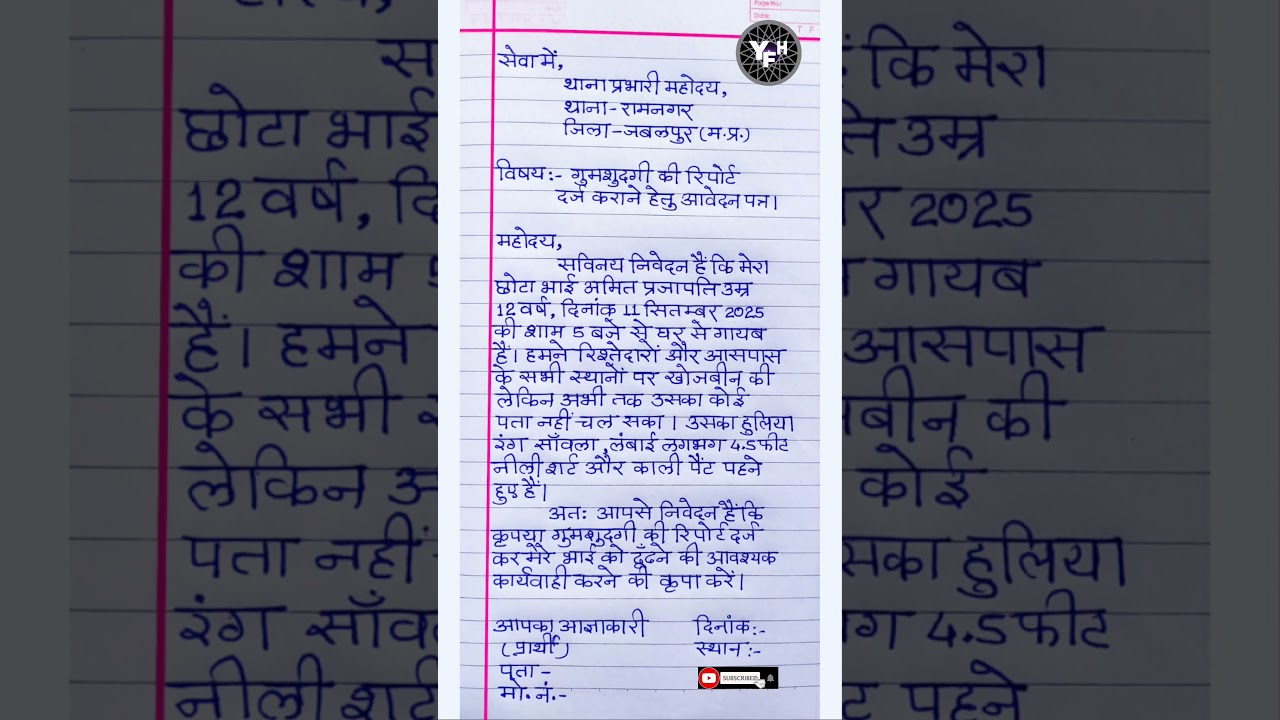 Page No.:
Date:
T F
YFH
सेवा में,
थाना प्रभारी महोदय,
थाना - रामनगर
जिला - जबलपुर (म.प्र.)
विषय:- गुमशुदगी की रिपोर्ट
दर्ज कराने हेतु आवेदन पत्र।
महोदय,
सविनय निवेदन हैं कि मेरा
छोटा भाई अमित प्रजापति उम्र
12 वर्ष, दिनांक 11 सितम्बर 2025
की शाम 5 बजे से घर से गायब
हैं। हमने रिश्तेदारों और आसपास
के सभी स्थानों पर खोजबीन की
लेकिन अभी तक उसका कोई
पता नहीं चल सका। उसका हुलिया
रंग साँवला, लंबाई लगभग 4.5 फीट
नीली शर्ट और काली पैंट पहने
हुए हैं।
अतः आपसे निवेदन हैं कि
कृपया गुमशुदगी की रिपोर्ट दर्ज
कर मेरे भाई को ढूँढने की आवश्यक
कार्यवाही करने की कृपा करें।
आपका आज्ञाकारी दिनांक:-
(प्रार्थी) स्थान:-
पता -
मो. नं. -
SUBSCRIBED